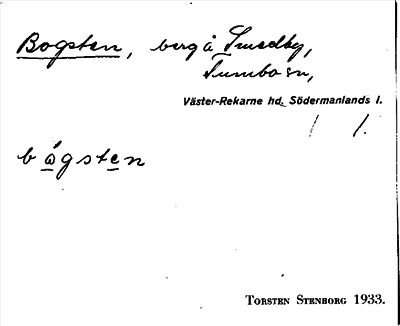 Bogsten, berg å Smedby,
Tumbo sn,
Väster-Rekarne hd, Södermanlands l.
bågsten
TORSTEN STENBORG 1933.